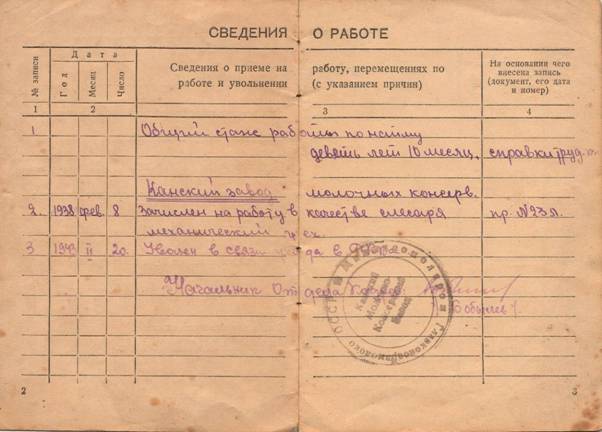 СВЕДЕНИЯ О РАБОТЕ
№ записи
Дата
Год
Месяц
Число
Сведения о приеме на работу, перемещениях по
работе и увольнении (с указанием причин)
На основании чего
внесена запись
(документ, его дата
и номер)
1 2 3 4
1 Общий стаж работы по найму
девять лет 10 месяц. справки труд.
Канский завод молочных консерв.
2. 1938 фев. 8 Зачислен на работу в качестве слесаря пр. №23 л.
механический цех.
3 1943 II 20. Уволен в связи
Начальник Отдела Кадров
Бобылев
Канский
Молочно
Консервный
Завод
2 3